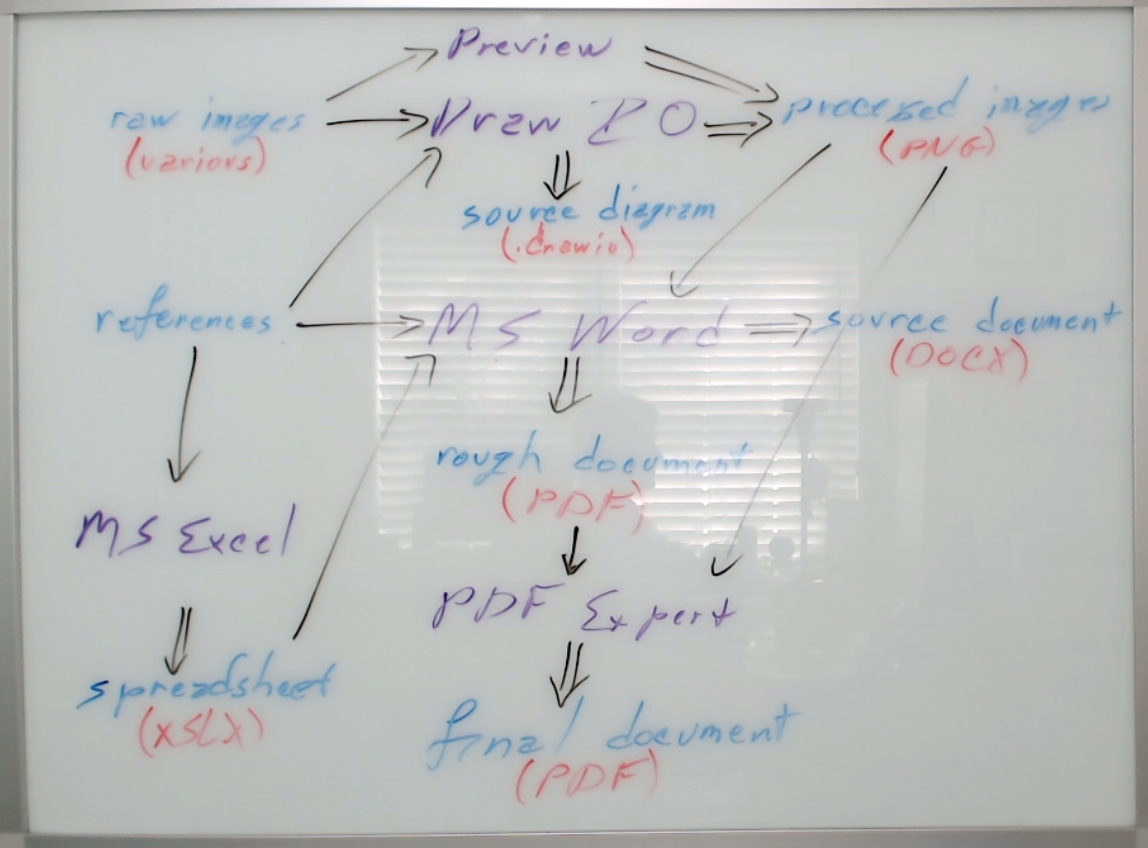 Preview
raw images
(various)
Draw IO
processed images
(PNG)
source diagram
(.drawio)
references
MS Word
source document
(DOCX)
rough document
(PDF)
MS Excel
PDF Expert
spreadsheet
(XSLX)
final document
(PDF)